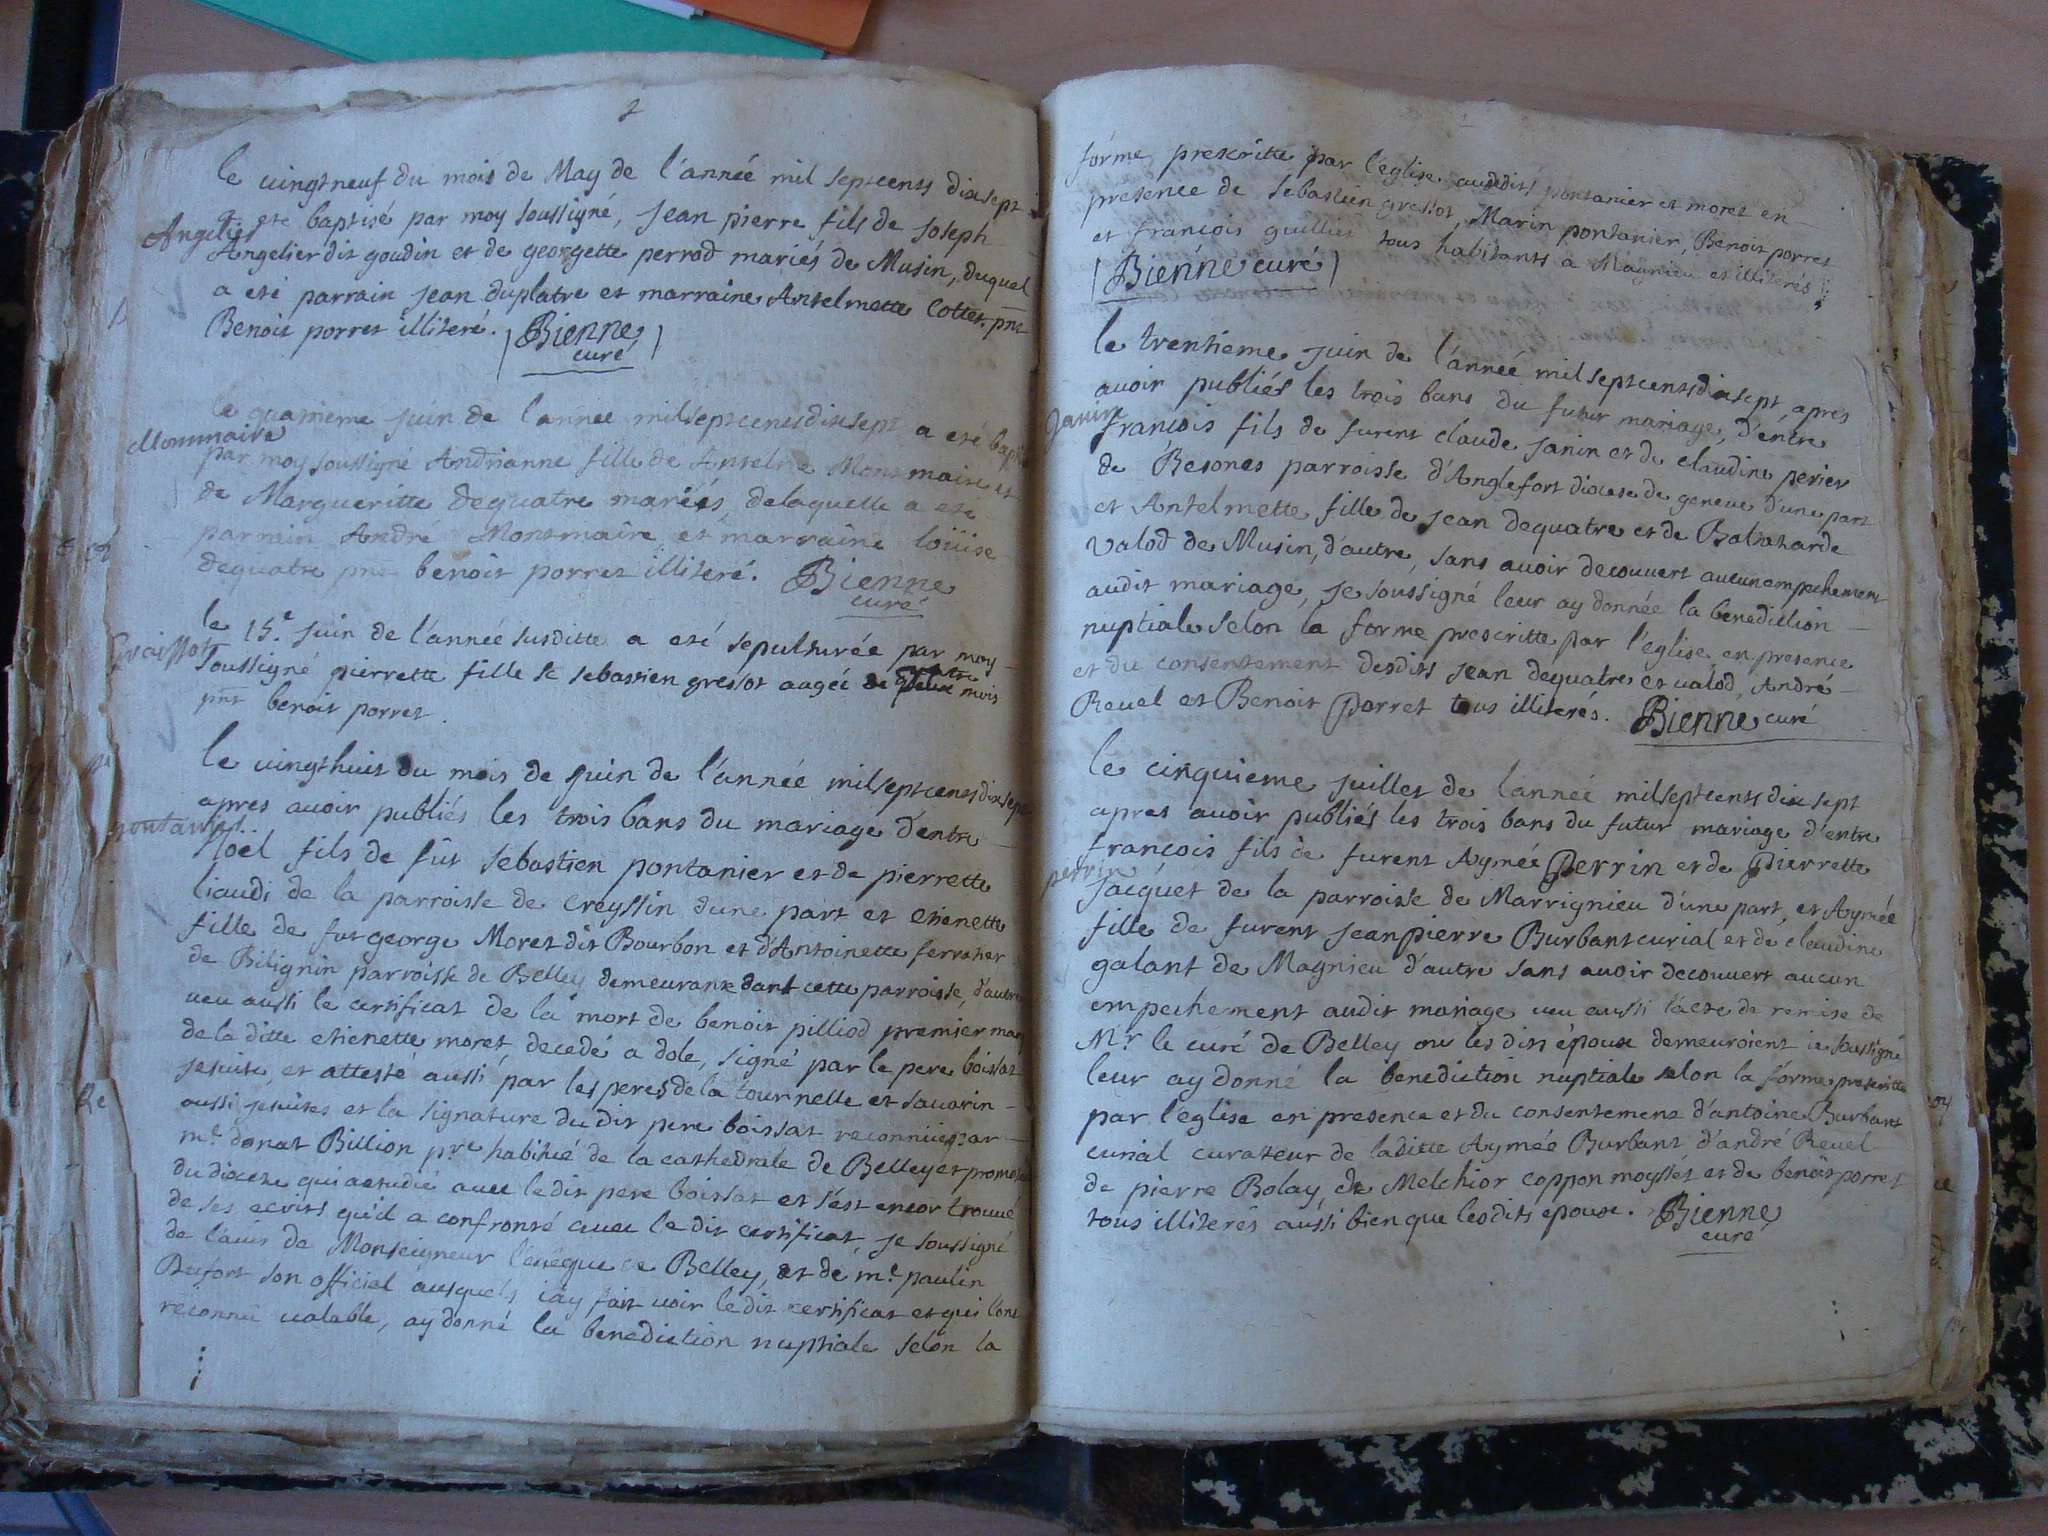 2
le vingt neuf du mois de May de l'année mil septcents dixsept
Angelier
a eté baptisé par moy soussigné, jean pierre fils de joseph
Angelier dit goudin et de georgette perrod mariés de Musin, duquel
a eté parrain jean duplatre et marraine Antelmette Cottet. pnt
Benoit porret illiteré. Bienne
curé
le quatrieme juin de l'annee mil septcents dixsept a eté baptisé
Monmaire
par moy soussigné Andrianne fille de Antelme Monmaire et
de Margueritte dequatre mariés, delaquelle a eté
parrain André Monmaire et marraine loüise
dequatre pnt benoit porret illiteré. Bienne
curé
le 15.e juin de l'année susditte a eté sepulturée par moy
Graissot
soussigné pierrette fille de sebastien gressot aagée de quatre mois
pnt benoit porret.
le vingthuit du mois de juin de l'année milseptcents dixsept
apres avoir publiés les trois bans du mariage d'entre
pontanier
Noel fils de fût sebastien pontanier et de pierrette
liaudi de la parroisse de Creyssin d'une part et etienette
fille de fut george Moret dit Bourbon et d'Antoinette ferraher
de Bilignin parroisse de Belley demeurant dant cette parroisse, d'autre
veu aussi le certificat de la mort de benoit pilliod premier mary
de la ditte etienette moret, decedé a dole, signé par le pere boissat
jesuite, et attesté aussi par les peres de la tournelle et savarin
aussi jesuites et la signature du dit pere boissat reconnüe par
m.e donat Billion p.re habitué de la cathedrale de Belley et promoteur
du diocese qui a etudié avec le dit pere boissat et s'est encor trouvé
de ses ecrits qu'il a confronté avec le dit certificat, je soussigné
de l'avis de Monseigneur l'evêque de Belley, et de m.e paulin
Dufort son official ausquels j'ay fait voir le dit certificat et qui l'ont
reconnu valable, ay donné la benediction nuptiale selon la
forme prescritte par l'eglise audits pontanier et moret en
presence de sebastien gressot, Marin pontanier, Benoit porret
et françois guillier tous habitants a Magnieu et illiterés.
Bienne curé
le trentieme juin de l'année mil septcents dixsept, apres
avoir publiés les trois bans du futur mariage, d'entre
Janin
francois fils de furent claude janin et de claudine perier
de Besones parroisse d'Anglefort diocese de geneve d'une part
et Antelmette fille de jean dequatre et de Baltazarde
valod de Musin, d'autre, sans avoir decouvert aucun empechement
audit mariage, je soussigné leur ay donnée la benediction
nuptiale selon la forme prescritte par l'eglise en presence
et du consentement desdits jean dequatre et valod, André
Revel et Benoit Porret tous illiterés. Bienne curé
le cinquieme juillet de l'année milseptcents dix sept
apres avoir publiés les trois bans du futur mariage d'entre
françois fils de furent Aymée Perrin et de Pierrette
perrin
jacquet de la parroisse de Marrignieu d'une part, et Aymée
fille de furent jeanpierre Burbant curial et de claudine
galant de Magnieu d'autre sans avoir decouvert aucun
empechement audit mariage veu aussi l'acte de remise de
M.r le curé de Belley ou les dits époux demeuroient je soussigné
leur ay donné la benediction nuptiale selon la forme prescritte
par l'eglise en presence et du consentement d'antoine Burbant
curial curateur de laditte Aymée Burbant d'andré Revel
de pierre Bolay, de Melchior coppon moysset et de benoit porret
tous illiterés aussi bien que lesdits epoux. Bienne
curé